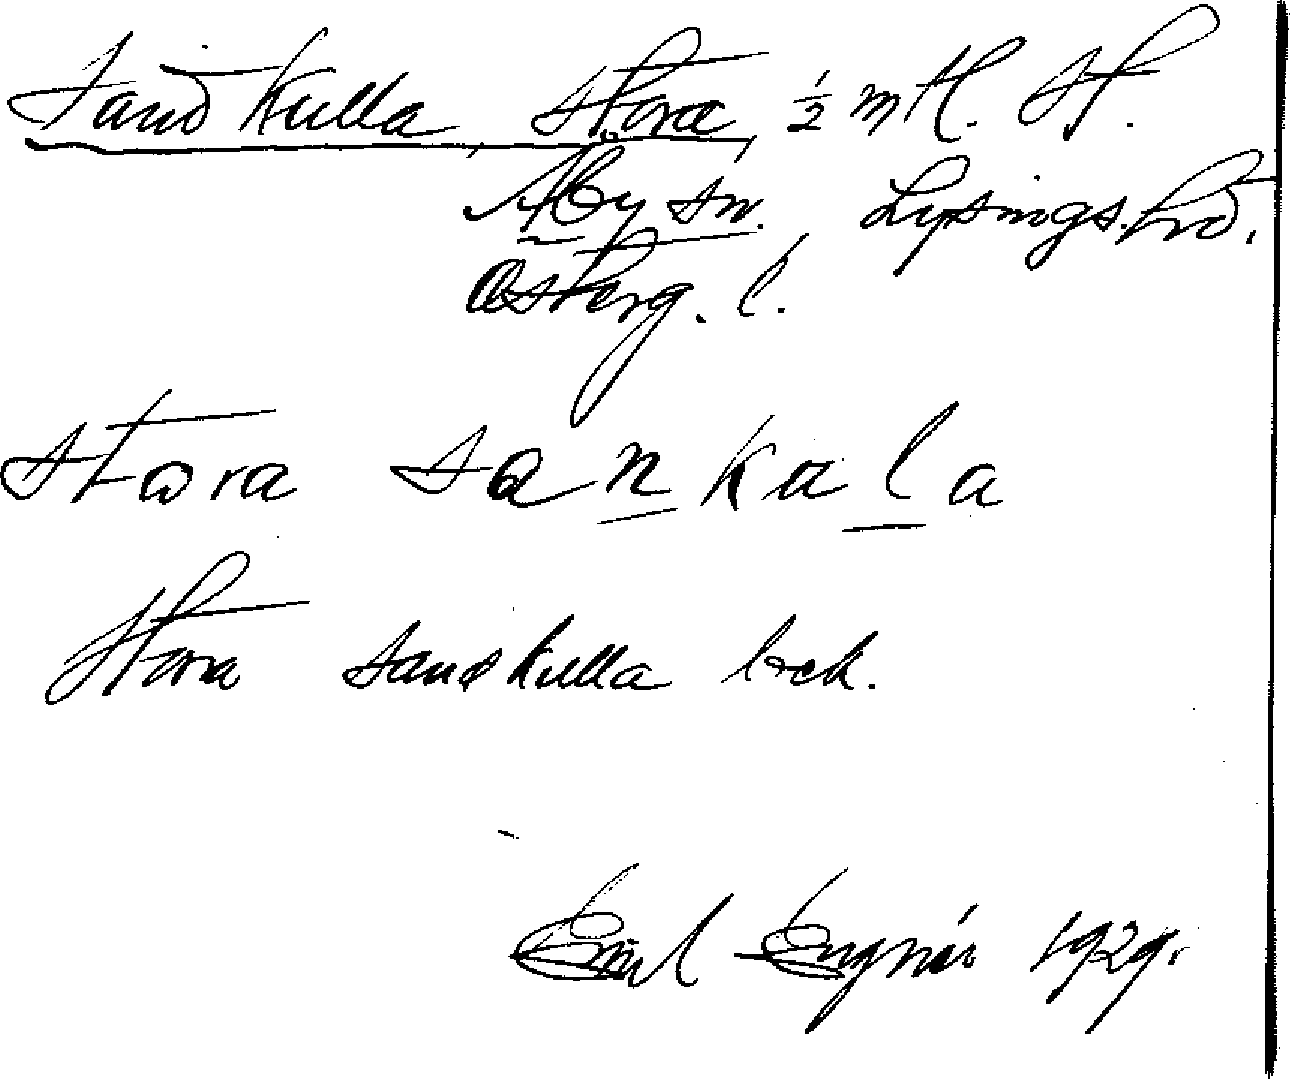 Sandkulla, Stora, ½ mtl. St.
Åby sn. Lysings hd.
Österg. l.
stora sankala
Stora Sandkulla bck.
Emil Engnér 1929.